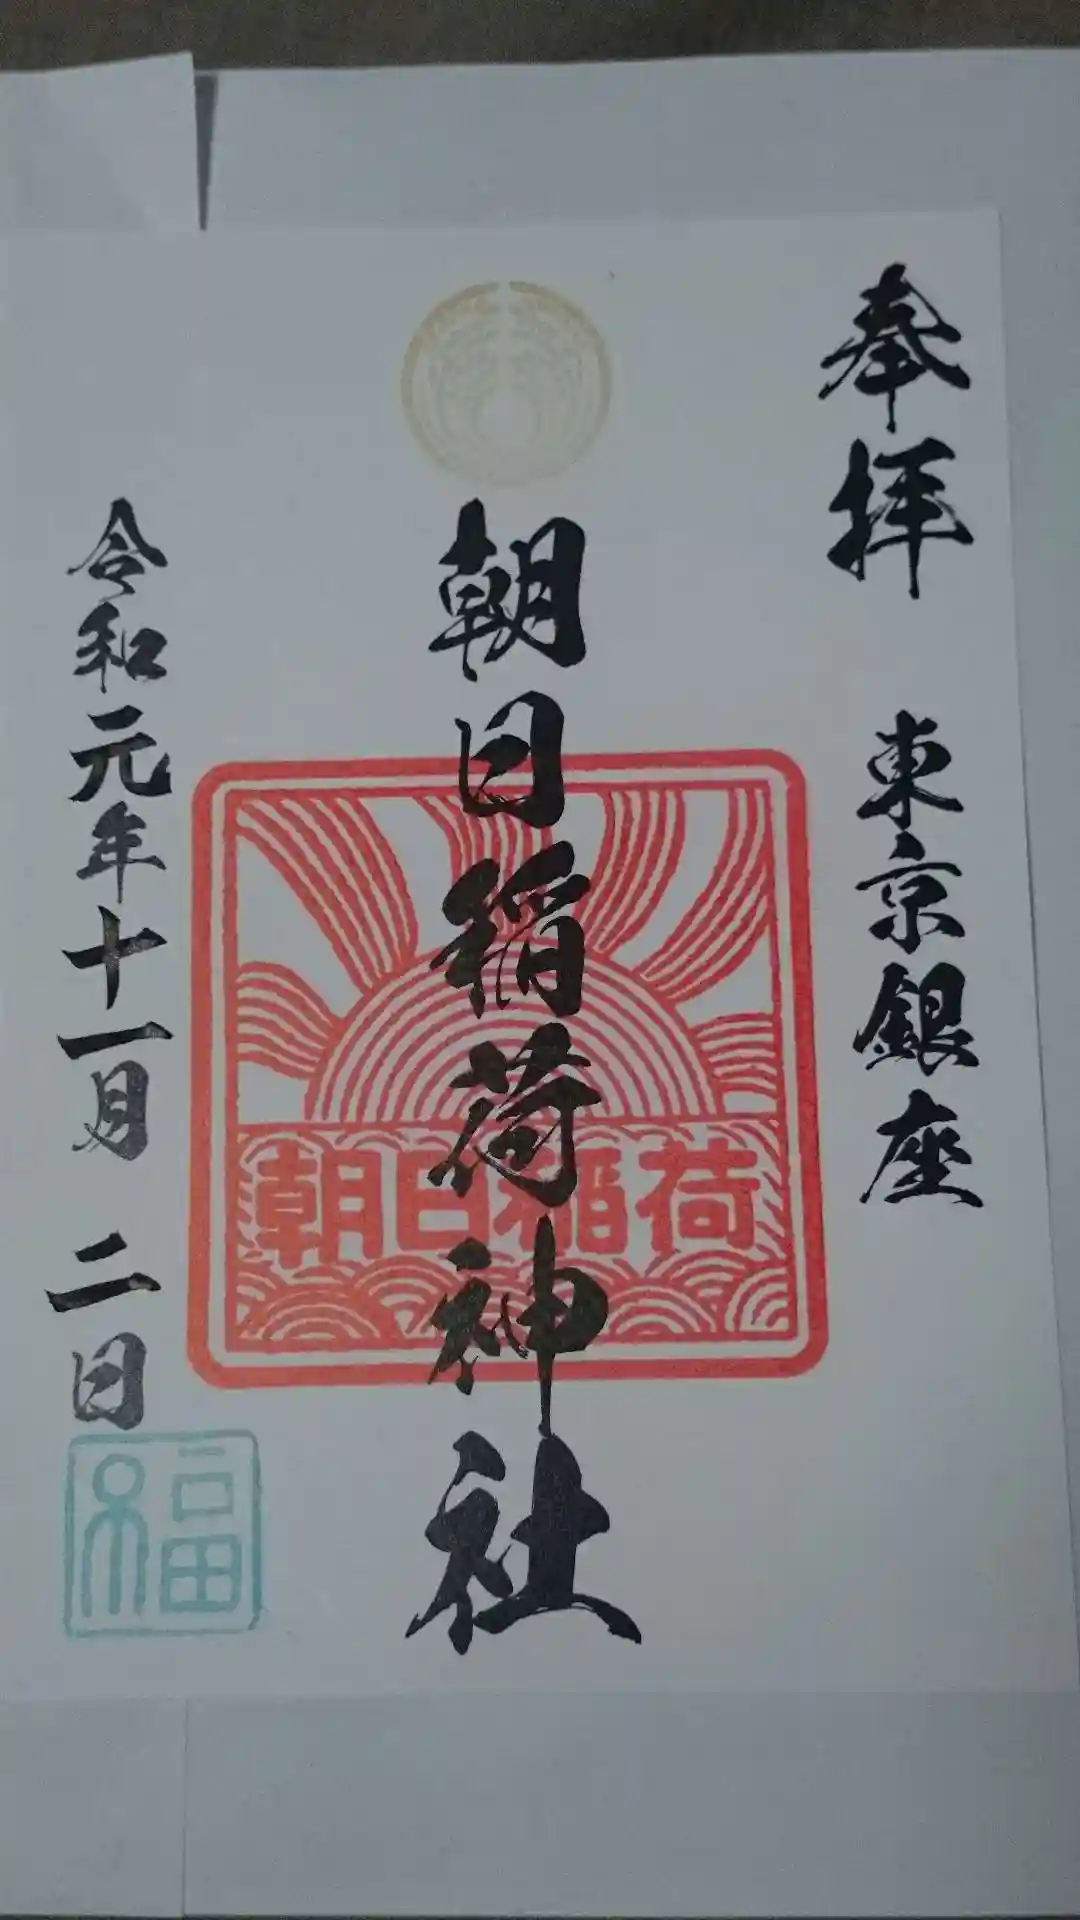 奉拝 東京銀座
朝日稲荷神社
朝日稲荷
令和元年十一月 二日
福